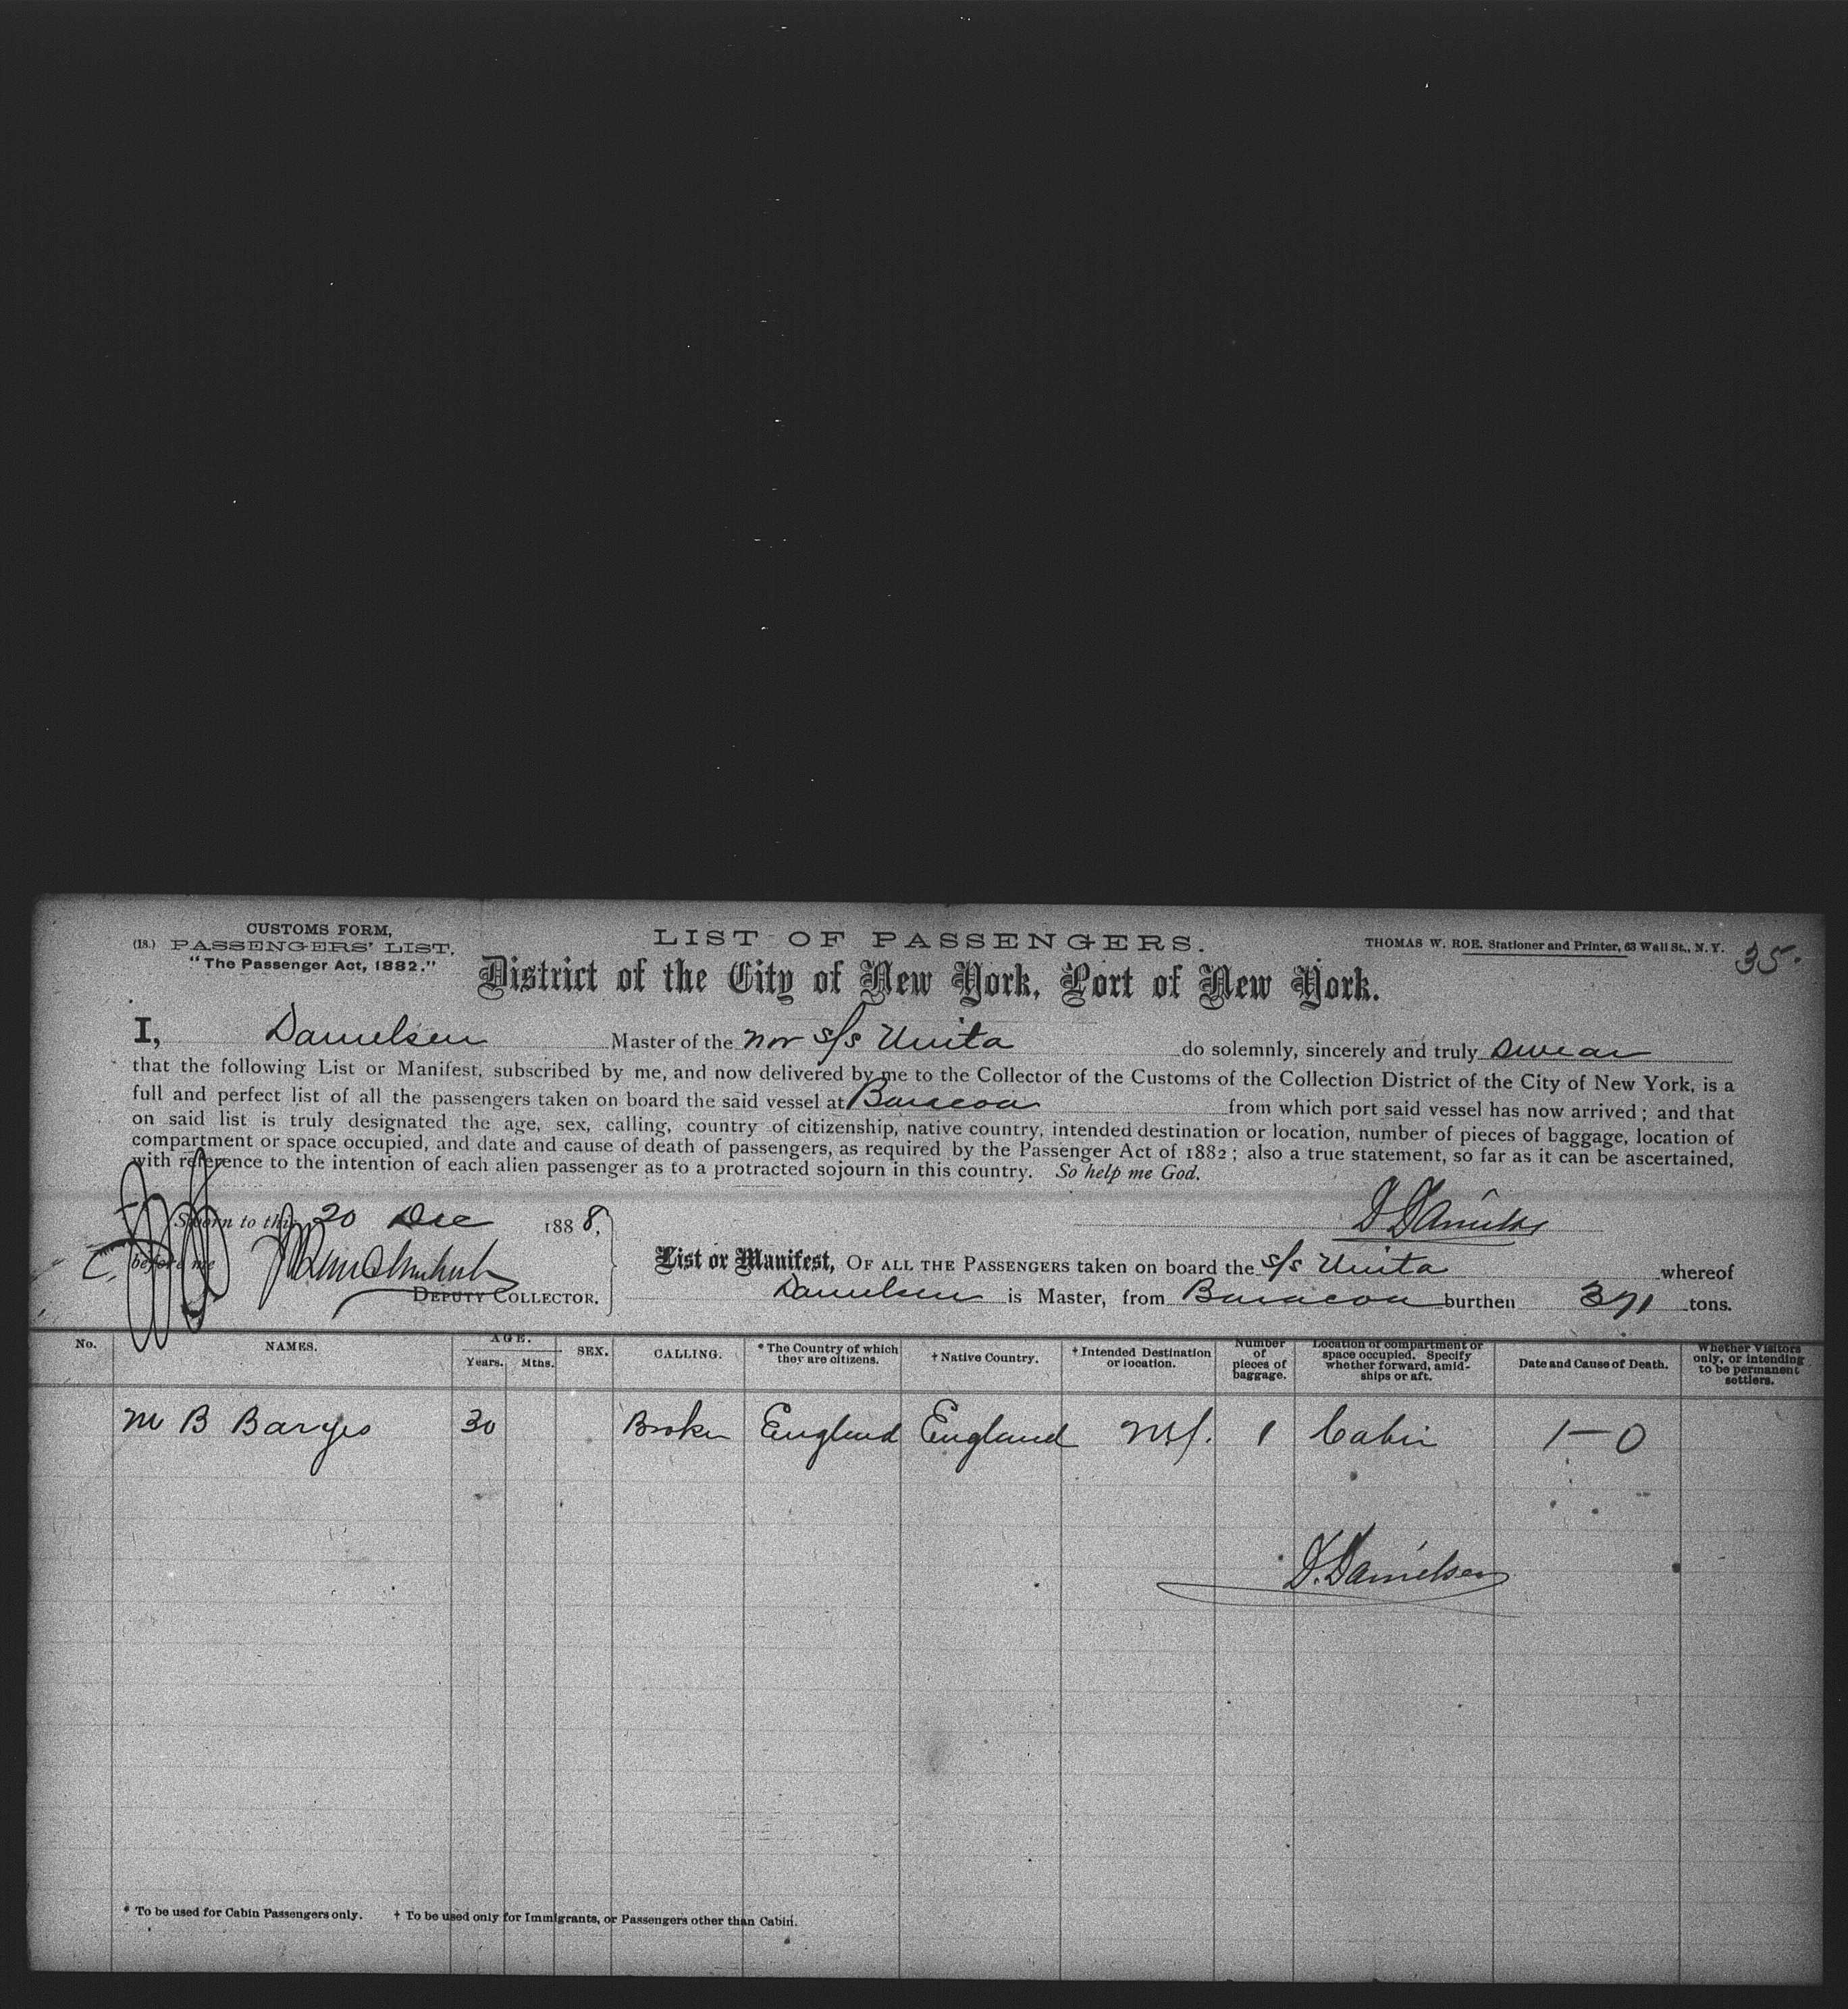 CUSTOMS FORM,
(18.) PASSENGERS' LIST.
"The Passenger Act, 1882."
LIST OF PASSENGERS.
THOMAS W. ROE, Stationer and Printer, 63 Wall St., N. Y.
35.
District of the City of New York, Port of New York.
I, Danielsen Master of the Nor S/S Unita do solemnly, sincerely and truly swear
that the following List or Manifest, subscribed by me, and now delivered by me to the Collector of the Customs of the Collection District of the City of New York, is a
full and perfect list of all the passengers taken on board the said vessel at Baracoa from which port said vessel has now arrived; and that
on said list is truly designated the age, sex, calling, country of citizenship, native country, intended destination or location, number of pieces of baggage, location of
compartment or space occupied, and date and cause of death of passengers, as required by the Passenger Act of 1882; also a true statement, so far as it can be ascertained,
with reference to the intention of each alien passenger as to a protracted sojourn in this country. So help me God.
Sworn to this 20 Dec 1888,
before me
DEPUTY COLLECTOR.
D Danielsen
List or Manifest, OF ALL THE PASSENGERS taken on board the S/S Unita whereof
Danielsen is Master, from Baracoa burthen 391 tons.
No. NAMES. AGE. Years. Mths. SEX. CALLING. * The Country of which they are citizens. † Native Country. † Intended Destination or location. Number of pieces of baggage. Location of compartment or space occupied. Specify whether forward, amidships or aft. Date and Cause of Death. Whether Visitors only, or intending to be permanent settlers.
M B 30 Broker England England 1 Cabin 1-0
D. Danielsen
* To be used for Cabin Passengers only. † To be used only for Immigrants, or Passengers other than Cabin.